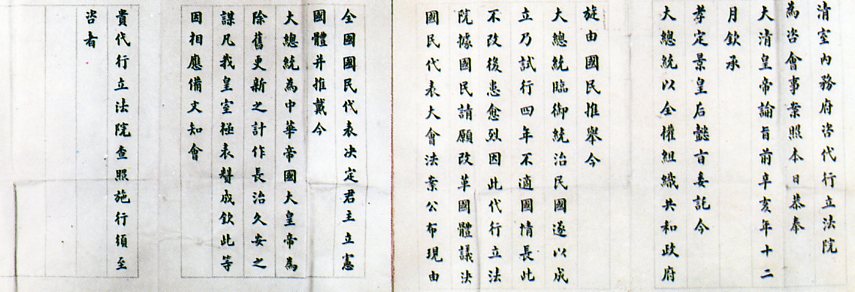 清室內務府咨代行立法院
為咨會事案照本日恭奉
大清皇帝諭旨前辛亥年十二
月欽承
孝定景皇后懿旨委託今
大總統以全權組織共和政府
旋由國民推舉今
大總統臨御統治民國遂以成
立乃試行四年不適國情長此
不改後患愈烈因此代行立法
院據國民請願改革國體議決
國民代表大會法案公布現由
全國國民代表決定君主立憲
國體并推戴今
大總統為中華帝國大皇帝為
除舊更新之計作長治久安之
謀凡我皇室極表贊成欽此等
因相應備文知會
貴代行立法院查照施行須至
咨者